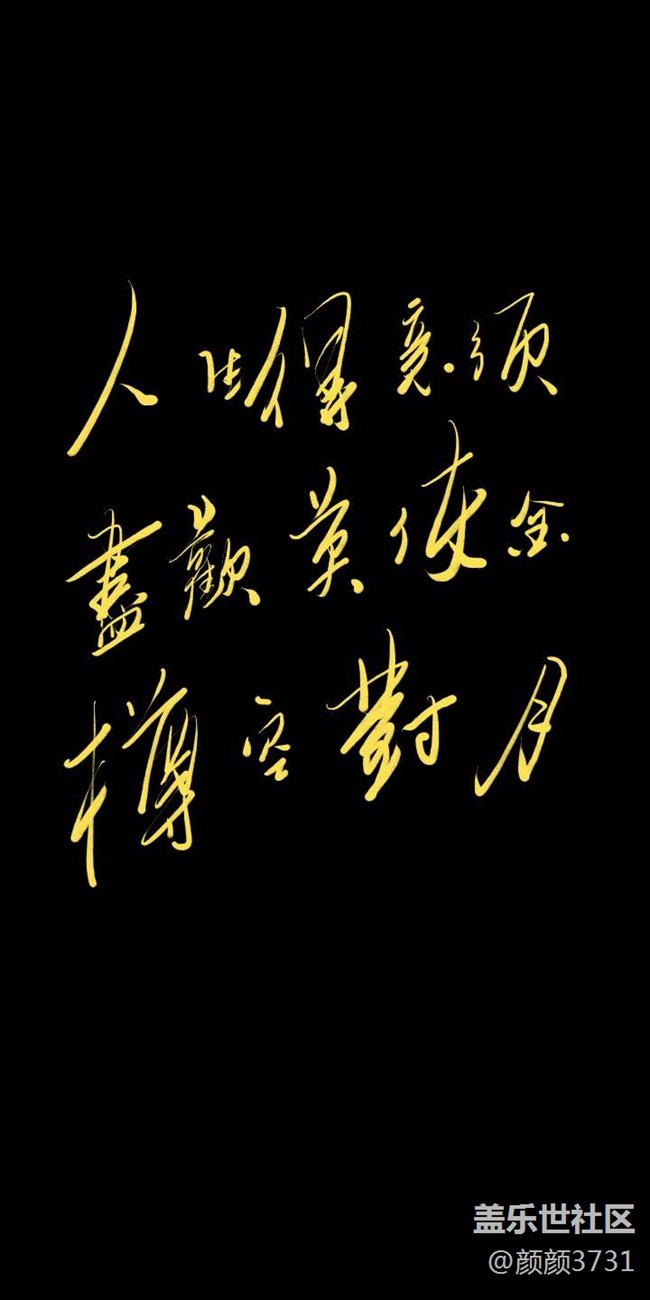 人生得意须
盡歡莫使金
樽空對月
盖乐世社区
@颜颜3731